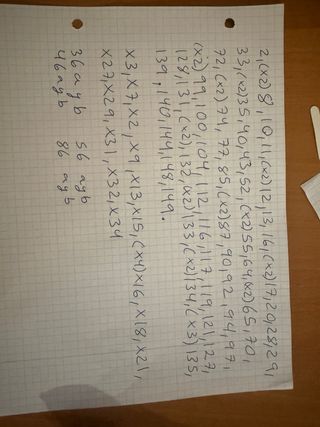 2,(x2)8,10,11,(x2)12,13,16,(x2)17,20,28,29,
33,(x2)35,40,43,52,(x2)55,64,(x2)65,70,
72,(x2)74,77,85,(x2)87,90,92,94,97,
(x2)99,100,104,112,116,117,119,121,127,
128,131,(x2)132,(x2)133,(x2)134,(x3)135,
139,140,144,148,149.
x3,x7,x2,x9,x13,x15,(x4)x16,x18,x21,
x27,x29,x31,x32,x34
36 agyb 56 agyb
46 agyb 86 agyb